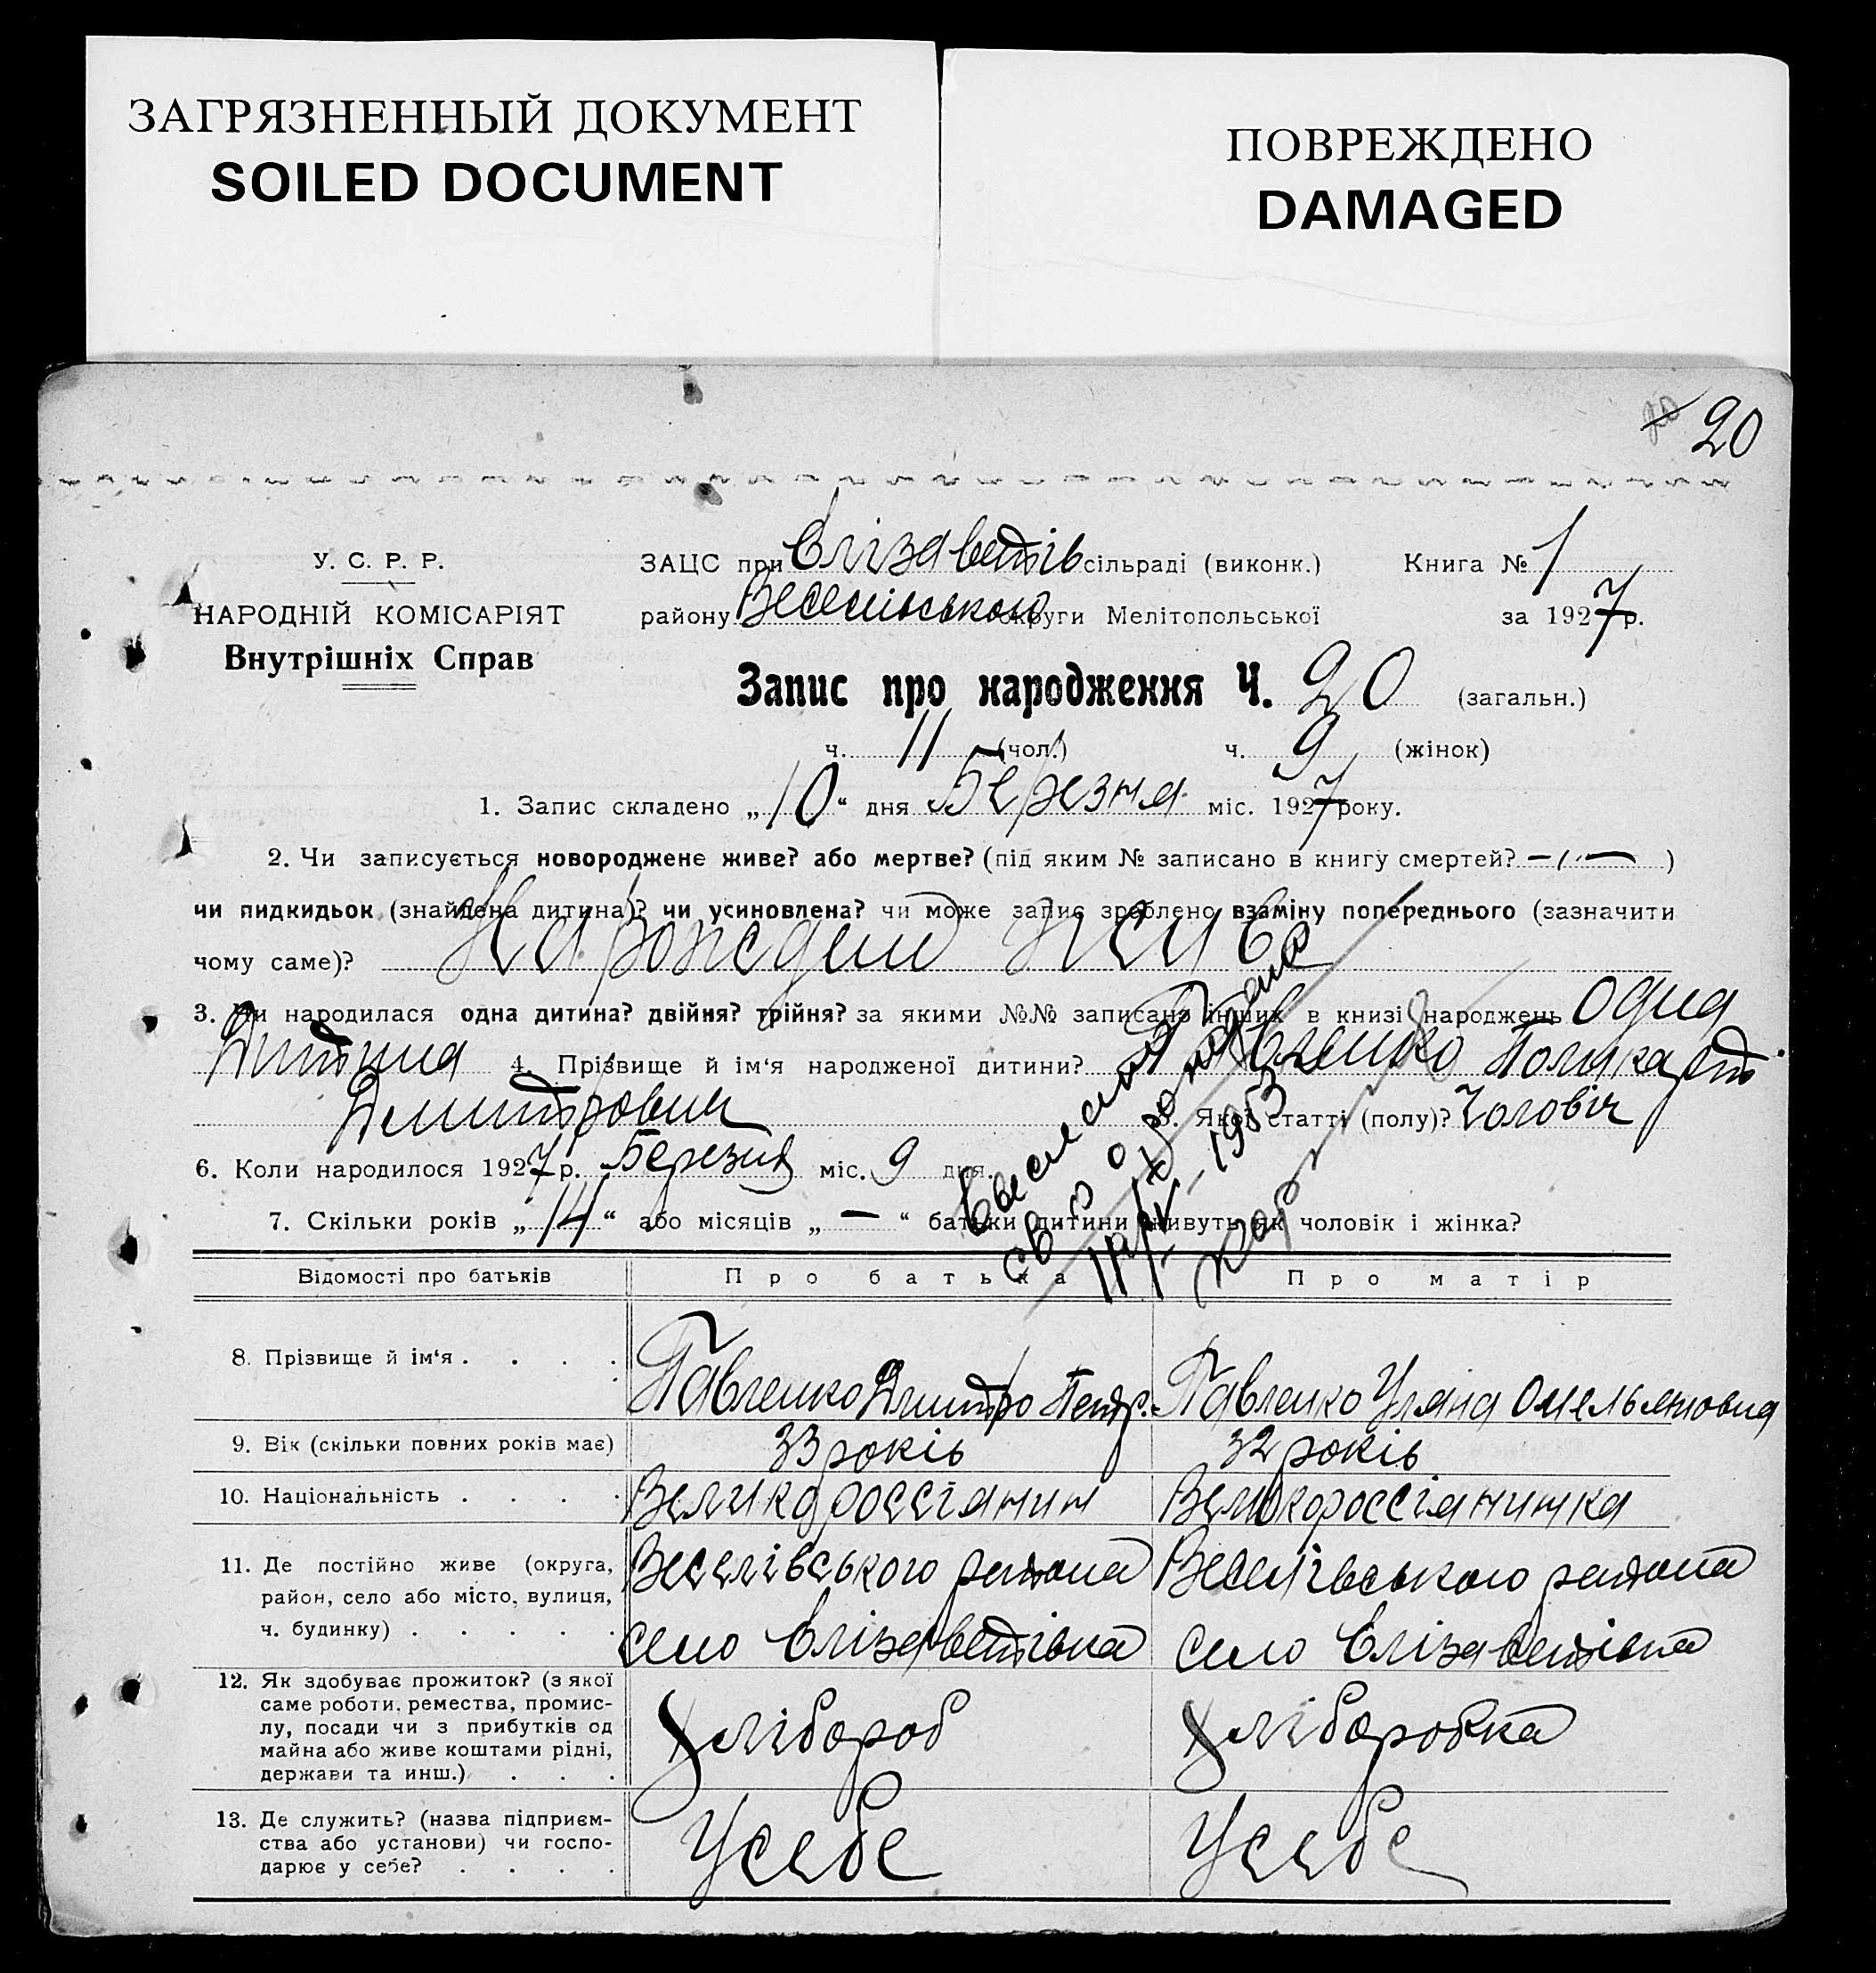 ЗАГРЯЗНЕННЫЙ ДОКУМЕНТ
SOILED DOCUMENT
ПОВРЕЖДЕНО
DAMAGED
20
У. С. Р. Р.
НАРОДНІЙ КОМІСАРІЯТ
Внутрішніх Справ
ЗАЦС при Єлізаветів сільраді (виконк.) Книга № 1
району Веселівського округи Мелітопольської за 1927 р.
Запис про народження Ч. 20 (загальн.)
ч. 11 (чол.) ч. 9 (жінок)
1. Запис складено „10“ дня Березня міс. 1927 року.
2. Чи записується новороджене живе? або мертве? (під яким № записано в книгу смертей? — )
чи пидкидьок (знайдена дитина)? чи усиновлена? чи може запис зроблено взаміну попереднього (зазначити
чому саме)? живе
3. Чи народилася одна дитина? двійня? трійня? за якими №№ записано інших в книзі народжень Одна
Дитина 4. Прізвище й ім‘я народженої дитини? Павленко
Дмитрович 5. Якої статті (полу)? Чоловіч
6. Коли народилося 1927 р. Березня міс. 9 дня.
7. Скільки років „14“ або місяців „—“ батьки дитини живуть як чоловік і жінка?
св о
1953
Відомості про батьків Про батька Про матір
8. Прізвище й ім‘я . . . . Павленко Дмитро Петр. Павленко Уляна Омельяновна
9. Вік (скільки повних років має) 33 років 32 років
10. Національність . . . . Великороссіянин Великороссіянинка
11. Де постійно живе (округа,
район, село або місто, вулиця,
ч. будинку) . . . . .
Веселівського район
село Єлізаветівка
Веселівського район
село Єлізаветівка
12. Як здобуває прожиток? (з якої
саме роботи, ремества, промис-
лу, посади чи з прибутків од
майна або живе коштами рідні,
держави та инш.) . . .
Хлібороб
Хліборобка
13. Де служить? (назва підприєм-
ства або установи) чи госпо-
дарює у себе? . . . .
Усебе
Усебе